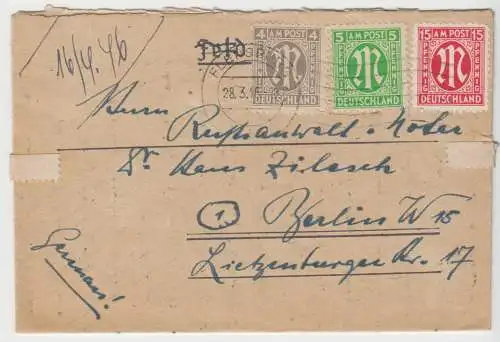 16/4. 46
Feld
4 AM POST 4
PFENNIG PFENNIG
DEUTSCHLAND
5 AM POST 5
PFENNIG PFENNIG
DEUTSCHLAND
15 AM POST 15
PFENNIG PFENNIG
DEUTSCHLAND
28.3.
Herrn
Rechtsanwalt u. Notar
Dr Hans Zilesch
1 Berlin W 15
Lietzenburger Str. 17